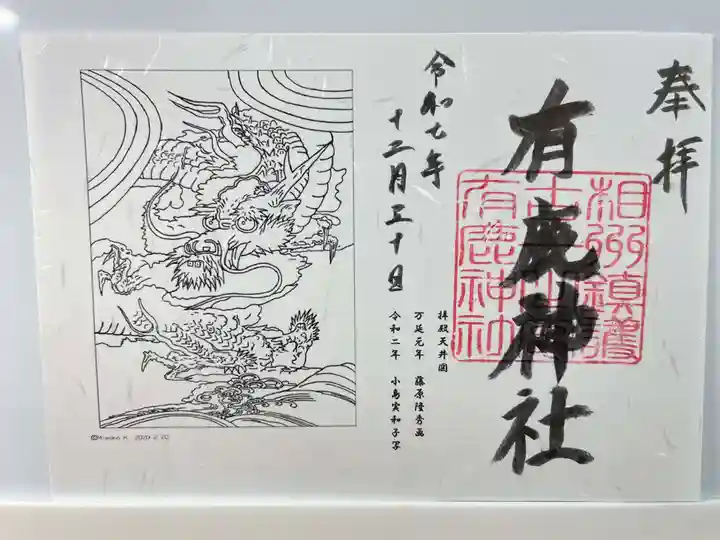 奉拝
有鹿神社
相州鎮護
有鹿神社
拝殿天井図
万延元年 藤原隆秀画
令和二年 小島実和子写
令和七年
十二月三十日